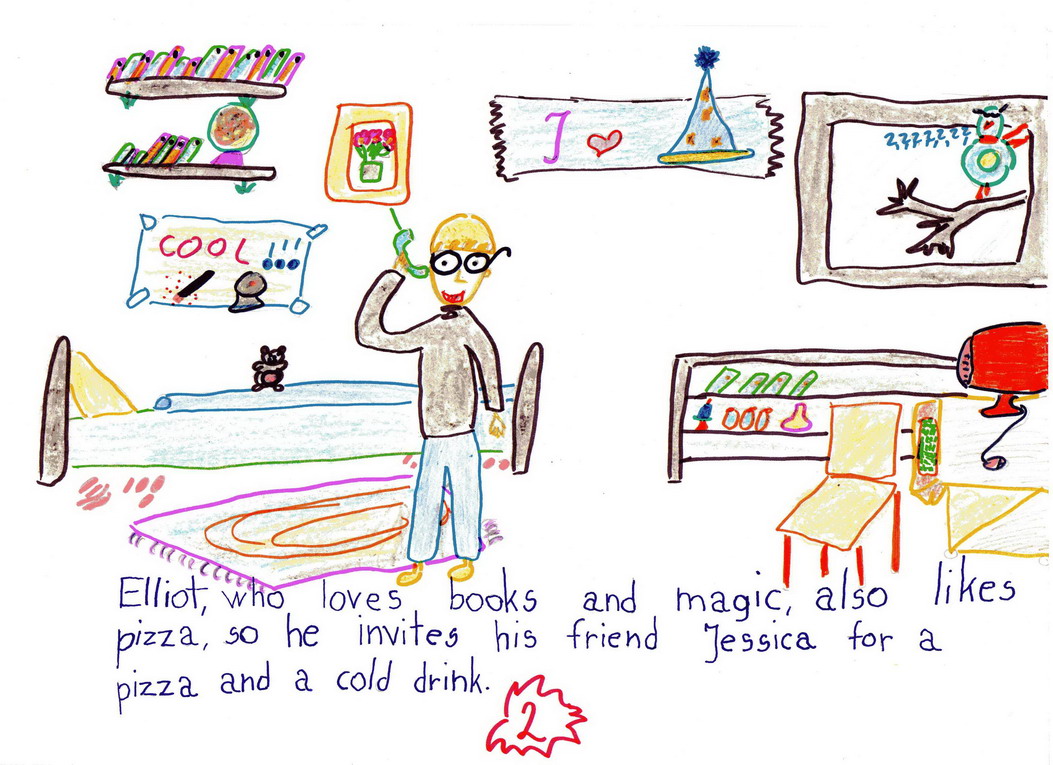 I
COOL !!!
Elliot, who loves books and magic, also likes
pizza, so he invites his friend Jessica for a
pizza and a cold drink.
2